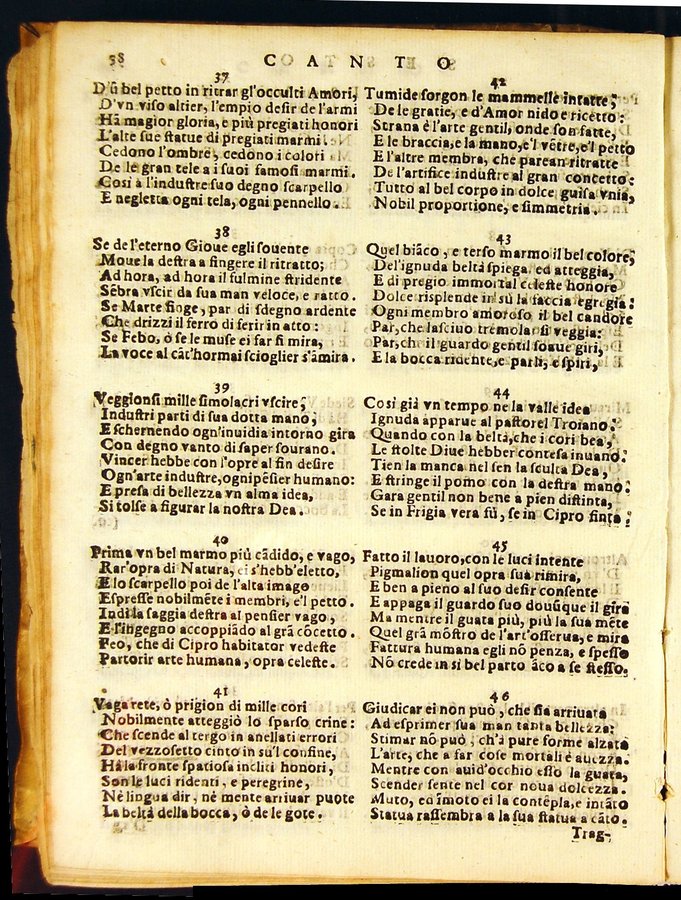 58
C O A N T O
37
D'ũ bel petto in ritrar gl'occulti Amori,
D'vn viso altier, l'empio desir de l'armi
Hà magior gloria, e più pregiati honori
L'alte sue statue di pregiati marmi.
Cedono l'ombre, cedono i colori
De le gran tele a i suoi famosi marmi.
Così à l'industre suo degno scarpello
E negletta ogni tela, ogni pennello.
38
Se de l'eterno Gioue egli souente
Moue la destra a fingere il ritratto;
Ad hora, ad hora il fulmine stridente
Sẽbra vscir da sua man veloce, e ratto.
Se Marte finge, par di sdegno ardente
Che drizzi il ferro di ferir in atto:
Se Febo, ò se le muse ei far si mira,
La voce al cãt'hormai scioglier s'ámira.
39
Veggionsi mille simolacri vscire;
Industri parti di sua dotta mano;
E schernendo ogn'inuidia intorno gira
Con degno vanto di saper sourano.
Vincer hebbe con l'opre al fin desire
Ogn'arte industre, ognipẽsier humano:
E presa di bellezza vn alma idea,
Si tolse a figurar la nostra Dea.
40
Prima vn bel marmo più cãdido, e vago,
Rar'opra di Natura, ei s'hebb'eletto,
E lo scarpello poi de l'alta imago
Espresse nobilmẽte i membri, e'l petto.
Indi la saggia destra al pensier vago,
E l'ingegno accoppiãdo al grã cõcetto.
Feo, che di Cipro habitator vedeste
Partorir arte humana, opra celeste.
41
Vaga rete, ò prigion di mille cori
Nobilmente atteggiò lo sparso crine:
Che scende al tergo in anellati errori
Del vezzosetto cinto in su'l confine,
Hà la fronte spatiosa incliti honori,
Son le luci ridenti, e peregrine,
Nè lingua dir, nè mente arriuar puote
La beltà della bocca, ò de le gote.
42
Tumide sorgon le mammelle intatte;
De le gratie, e d'Amor nido e ricetto:
Strana è l'arte gentil, onde son fatte,
E le braccia, e la mano, e'l vẽtre, e'l petto
E l'altre membra, che parean ritratte
De l'artifice industre al gran concetto:
Tutto al bel corpo in dolce guisa vnia,
Nobil proportione, e simmetria.
43
Quel biãco, e terso marmo il bel colore,
Del'ignuda beltà spiega, ed atteggia,
E di pregio immortal celeste honore
Dolce risplende in sù la faccia egregia:
Ogni membro amoroso il bel candore
Par, che lasciuo tremolar si veggia:
Par, che il guardo gentil soaue giri,
E la bocca ridente, e parli, e spiri,
44
Così già vn tempo ne la valle idea
Ignuda apparue al pastorel Troiano.
Quando con la beltà, che i cori bea,
Le stolte Diue hebber contesa inuano.
Tien la manca nel sen la sculta Dea,
E stringe il pomo con la destra mano.
Gara gentil non bene a pien distinta,
Se in Frigia vera fù, se in Cipro finta.
45
Fatto il lauoro, con le luci intente
Pigmalion quel opra sua rimira,
E ben a pieno al suo desir consente
E appaga il guardo suo douũque il gira
Ma mentre il guata più, più la sua mẽte
Quel grã mõstro de l'art'osserua, e mira
Fattura humana egli nõ penza, e spesso
Nõ crede in sì bel parto ãco a se stesso.
46
Giudicar ei non può, che sia arriuata
Ad esprimer sua man tanta bellezza:
Stimar nõ può, ch'à pure forme alzata
L'arte, che a far cose mortali è auezza.
Mentre con auid'occhio esso la guata,
Scender sente nel cor noua dolcezza.
Muto, ed ãmoto ei la contẽpla, e intãto
Statua rassembra a la sua statua a cãto.
Trag-